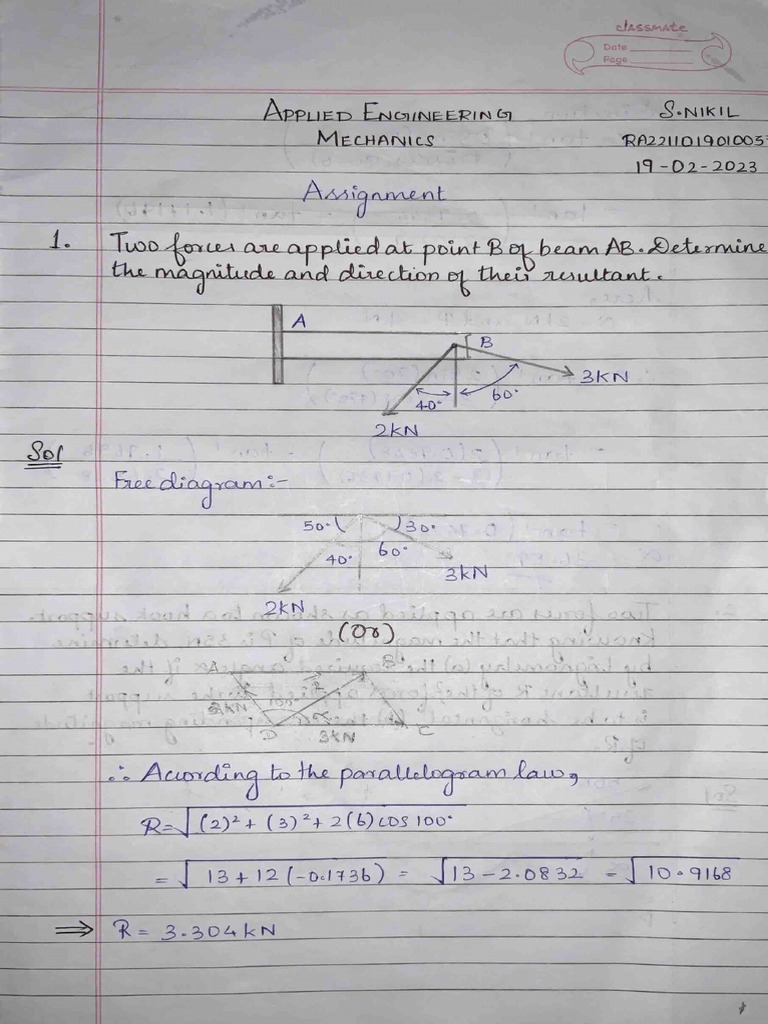 classmate
Date
Page
APPLIED ENGINEERING
S.NIKIL
MECHANICS
RA2211019010053
19-02-2023
Assignment
1. Two forces are applied at point B of beam AB. Determine
the magnitude and direction of their resultant.
A
B
3KN
60°
40°
2KN
Sol
Free diagram:-
50° 30°
40° 60°
3KN
2KN
(Or)
A B
2KN 100°
D C
3KN
∴ According to the parallelogram law,
R=√(2)²+(3)²+2(6)cos100°
=√13+12(-0.1736) = √13-2.0832 = √10.9168
⇒ R= 3.304kN